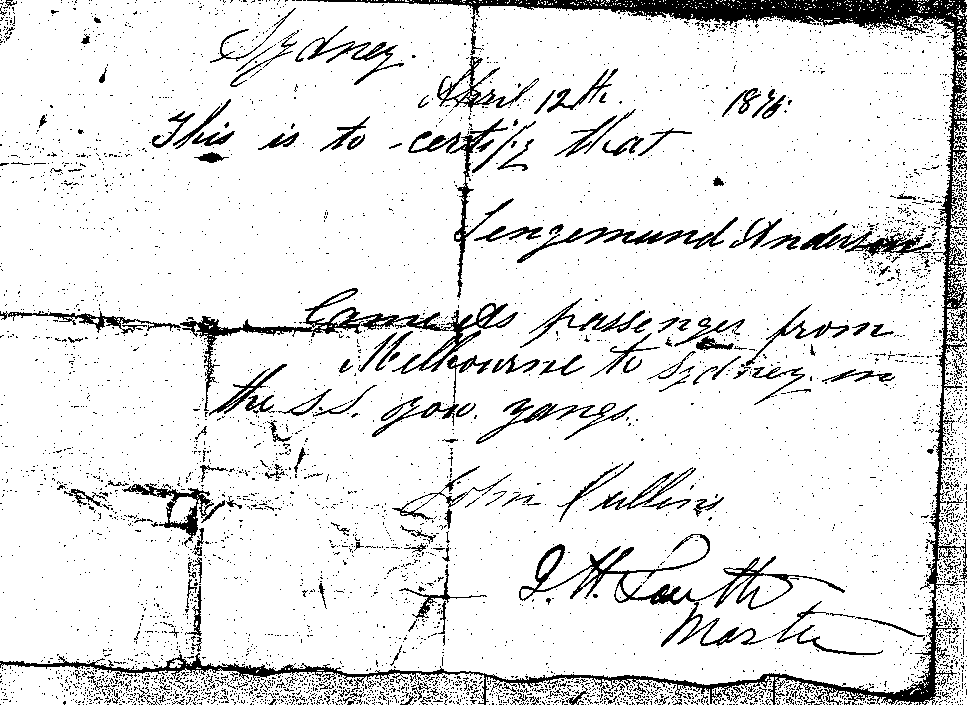 Sydney.
April 12th. 1876.
This is to certify that
Sengemund Anderson
Came As passenger from
Melbourne to Sydney. in
the S.S. You. Yangs.
John Cullins
J. H. South
Master